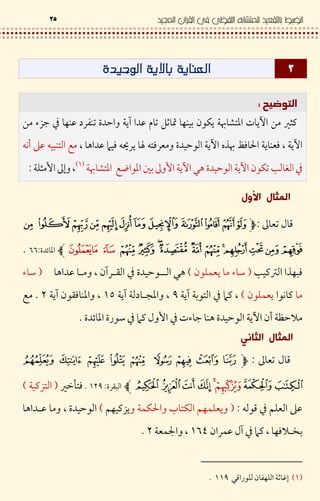 الضبط بالتقعيد للمتشابه اللفظي في القرآن المجيد ٢٥
٢ العناية بالآية الوحيدة
التوضيح :
كثير من الآيات المتشابهة يكون بينها تماثل تام عدا آية واحدة تنفرد عنها في جزء من
الآية ، فعناية الحافظ بهذه الآية الوحيدة ومعرفته لها يريحه فيما عداها ، مع التنبيه على أنه
في الغالب تكون الآية الوحيدة هي الآية الأولى بين المواضع المتشابهة (١) ، وإلى الأمثلة :
المثال الأول
قال تعالى : ﴿ وَلَوْ أَنَّهُمْ أَقَامُوا۟ ٱلتَّوْرَىٰةَ وَٱلْإِنجِيلَ وَمَآ أُنزِلَ إِلَيْهِم مِّن رَّبِّهِمْ لَأَكَلُوا۟ مِن
فَوْقِهِمْ وَمِن تَحْتِ أَرْجُلِهِم ۚ مِّنْهُمْ أُمَّةٌ مُّقْتَصِدَةٌ ۖ وَكَثِيرٌ مِّنْهُمْ سَآءَ مَا يَعْمَلُونَ ﴾ المائدة: ٦٦ .
فبهذا التركيب ( ساء ما يعملون ) هي الوحيدة في القرآن ، وما عداها ( ساء
ما كانوا يعملون ) ، كما في التوبة آية ٩ ، والمجادلة آية ١٥ ، والمنافقون آية ٢ . مع
ملاحظة أن الآية الوحيدة هنا جاءت في الأول كما في سورة المائدة .
المثال الثاني
قال تعالى : ﴿ رَبَّنَا وَٱبْعَثْ فِيهِمْ رَسُولًا مِّنْهُمْ يَتْلُوا۟ عَلَيْهِمْ ءَايَـٰتِكَ وَيُعَلِّمُهُمُ
ٱلْكِتَـٰبَ وَٱلْحِكْمَةَ وَيُزَكِّيهِمْ ۚ إِنَّكَ أَنتَ ٱلْعَزِيزُ ٱلْحَكِيمُ ﴾ البقرة: ١٢٩ . فتأخير ( التزكية )
على العلم في قوله : ( ويعلمهم الكتاب والحكمة ويزكيهم ) الوحيدة ، وما عداها
بخلافها ، كما في آل عمران ١٦٤ ، والجمعة ٢ .
(١) إغاثة اللهفان للوراقي ١١٩ .